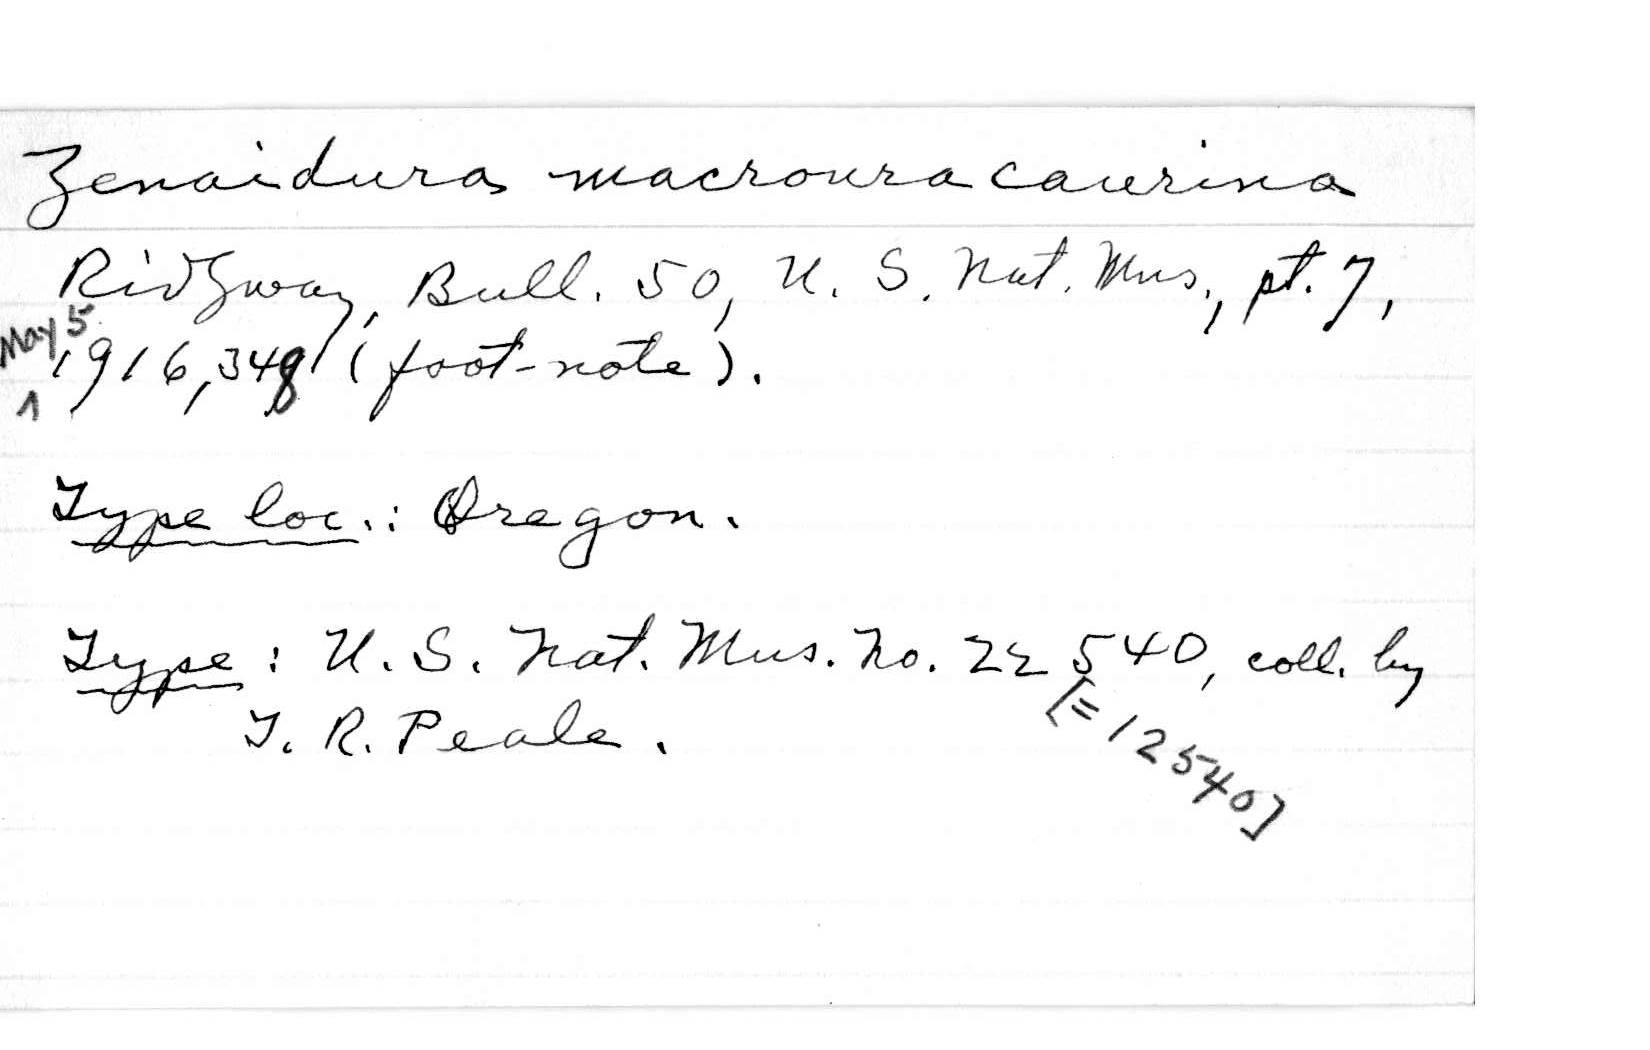 Zenaidura macroura caurina
Ridgway, Bull. 50, U. S. Nat. Mus., pt. 7,
May 5
1916, 348 (foot-note).
Type loc.: Oregon.
Type: U. S. Nat. Mus. No. 22540, coll. by
T. R. Peale.
[=12540]